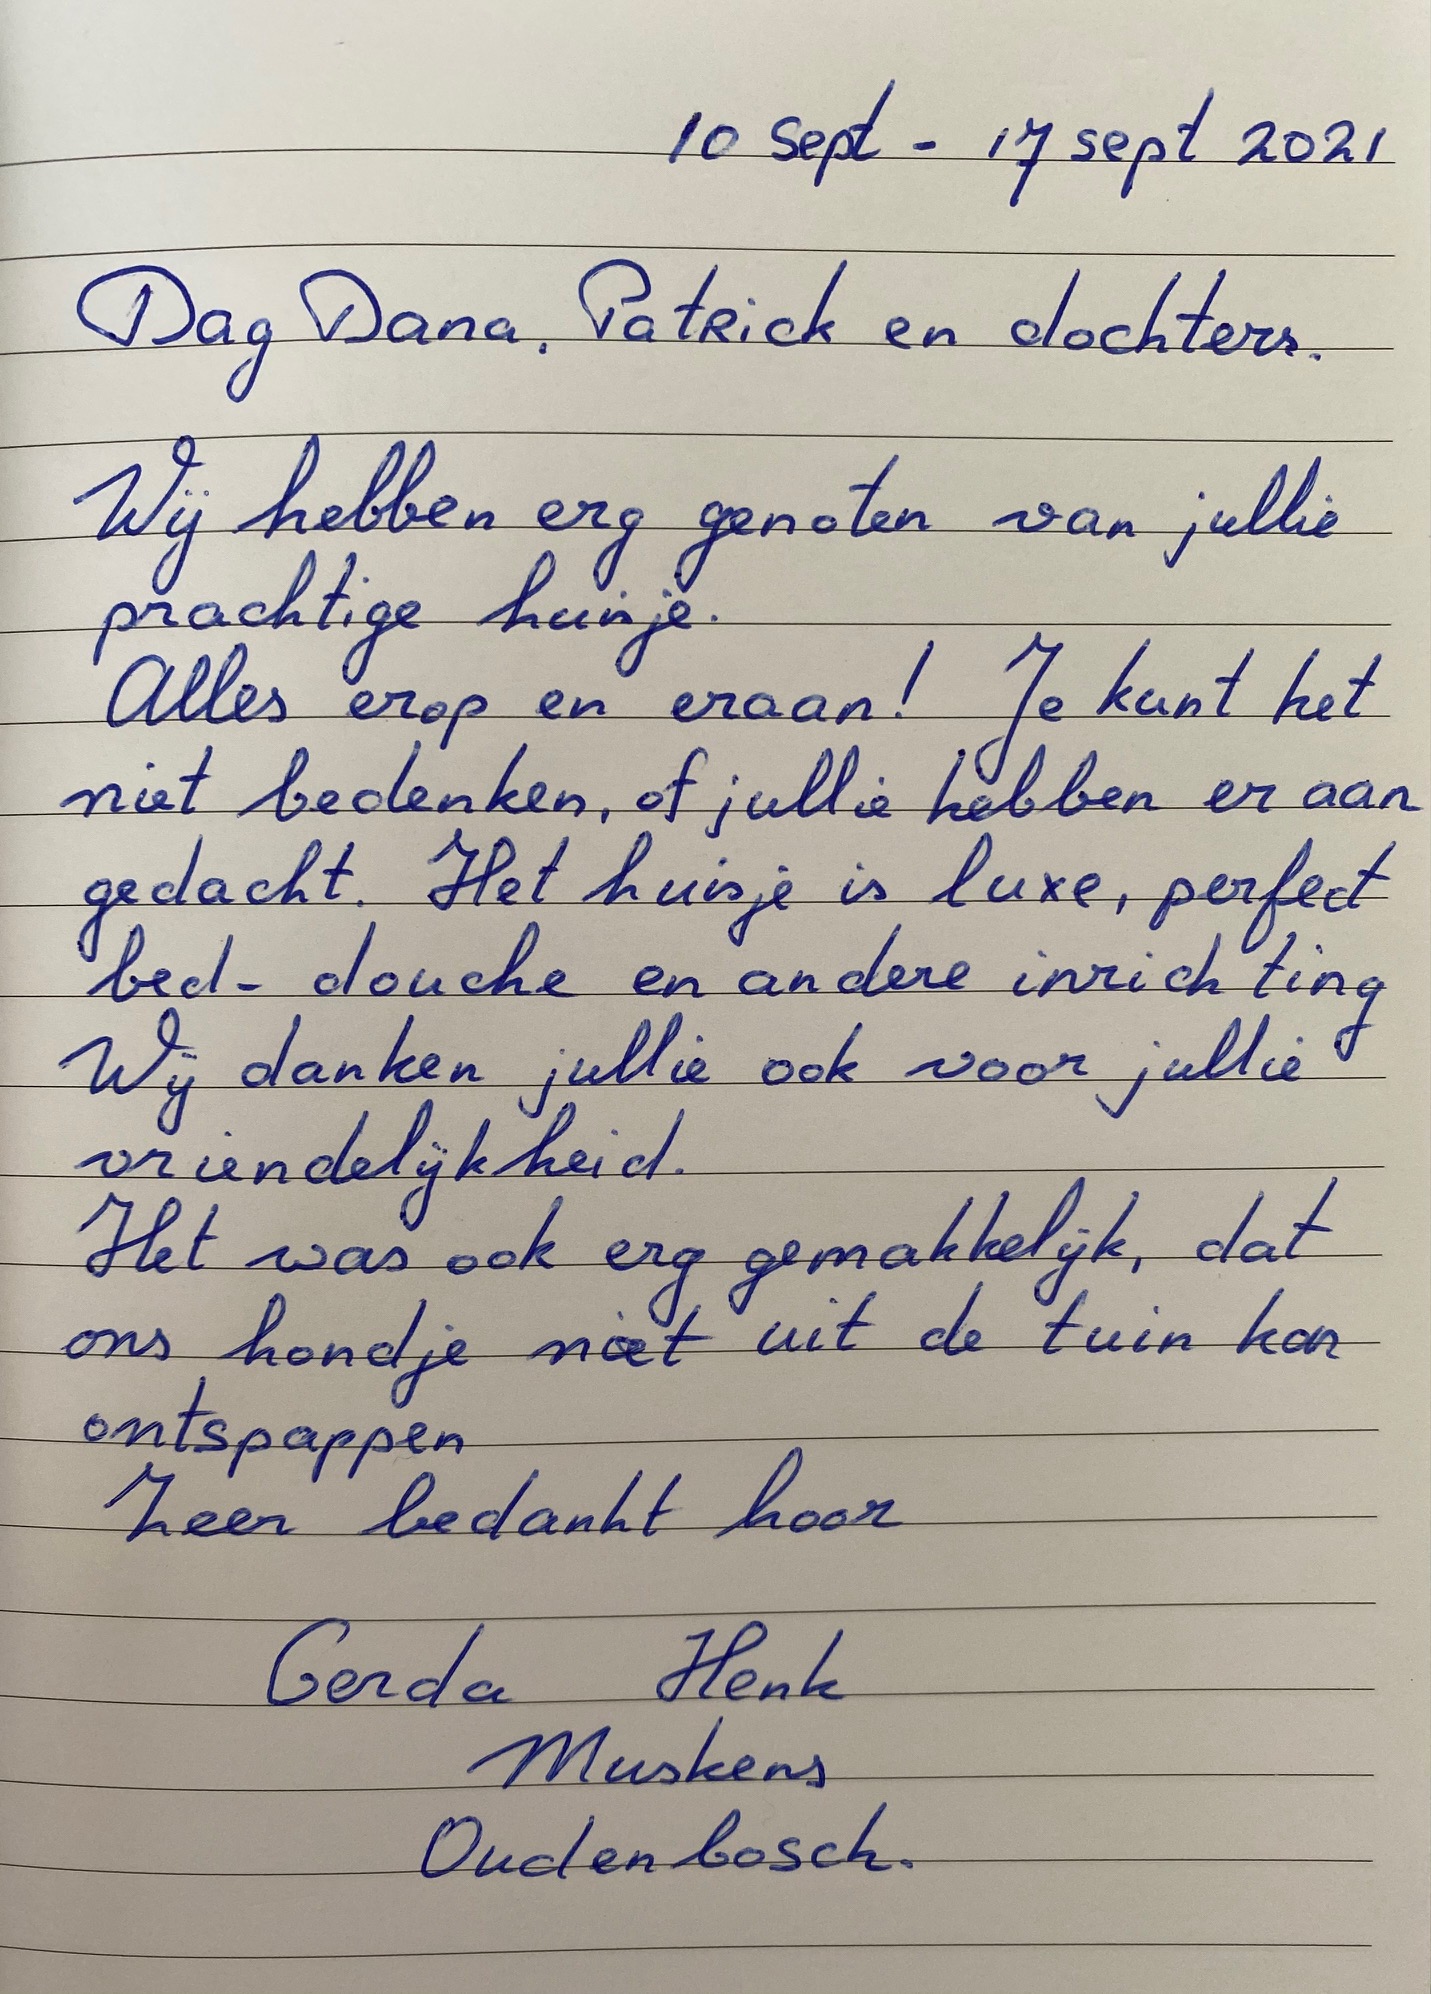 10 Sept - 17 sept 2021
Dag Dana, Patrick en dochters.
Wij hebben erg genoten van jullie
prachtige huisje.
Alles erop en eraan! Je kunt het
niet bedenken, of jullie hebben er aan
gedacht. Het huisje is luxe, perfect
bed- douche en andere inrichting
Wij danken jullie ook voor jullie
vriendelijkheid.
Het was ook erg gemakkelijk, dat
ons hondje niet uit de tuin kon
ontspappen
Zeer bedankt hoor
Gerda Henk
Muskens
Oudenbosch.